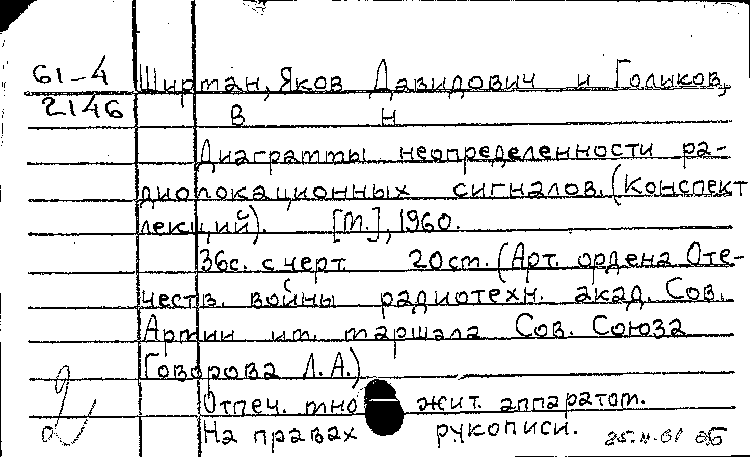 61-4
2146
Ширман, Яков Давидович и Голиков,
В Н
Диаграммы неопределенности ра-
диолокационных сигналов. (Конспект
лекций). [М.], 1960.
36с. с черт. 20см. (Арт. ордена Оте-
честв. войны радиотехн. акад. Сов.
Армии им. маршала Сов. Союза
Говорова Л.А.)
Отпеч. мно жит. аппаратом.
На правах рукописи.
2